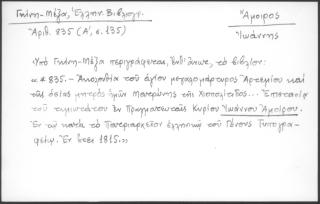 Γκίνη-Μέξα, Ἑλλην. Βιβλιογρ.
Ἀριθ. 835 (Α', σ. 135)
Ἄμοιρος
Ἰωάννης
Ὑπὸ Γκίνη-Μέξα περιγράφεται, ἐκδ. τὸ βιβλίον:
«* 835.– Ἀκολουθία τοῦ ἁγίου μεγαλομάρτυρος Ἀρτεμίου καὶ
τῆς ὁσίας μητρὸς ἡμῶν Ματρώνης τῆς Χιοπολίτιδος... Ἐπιστασίᾳ
τοῦ τιμιωτάτου ἐν Πραγματευταῖς Κυρίου Ἰωάννου Ἀμοίρου.
Ἐν τῇ κατὰ τὸ Πατριαρχεῖον ἑλληνικῇ τοῦ Γένους Τυπογρα-
φείῳ. Ἐν ἔτει 1815.»